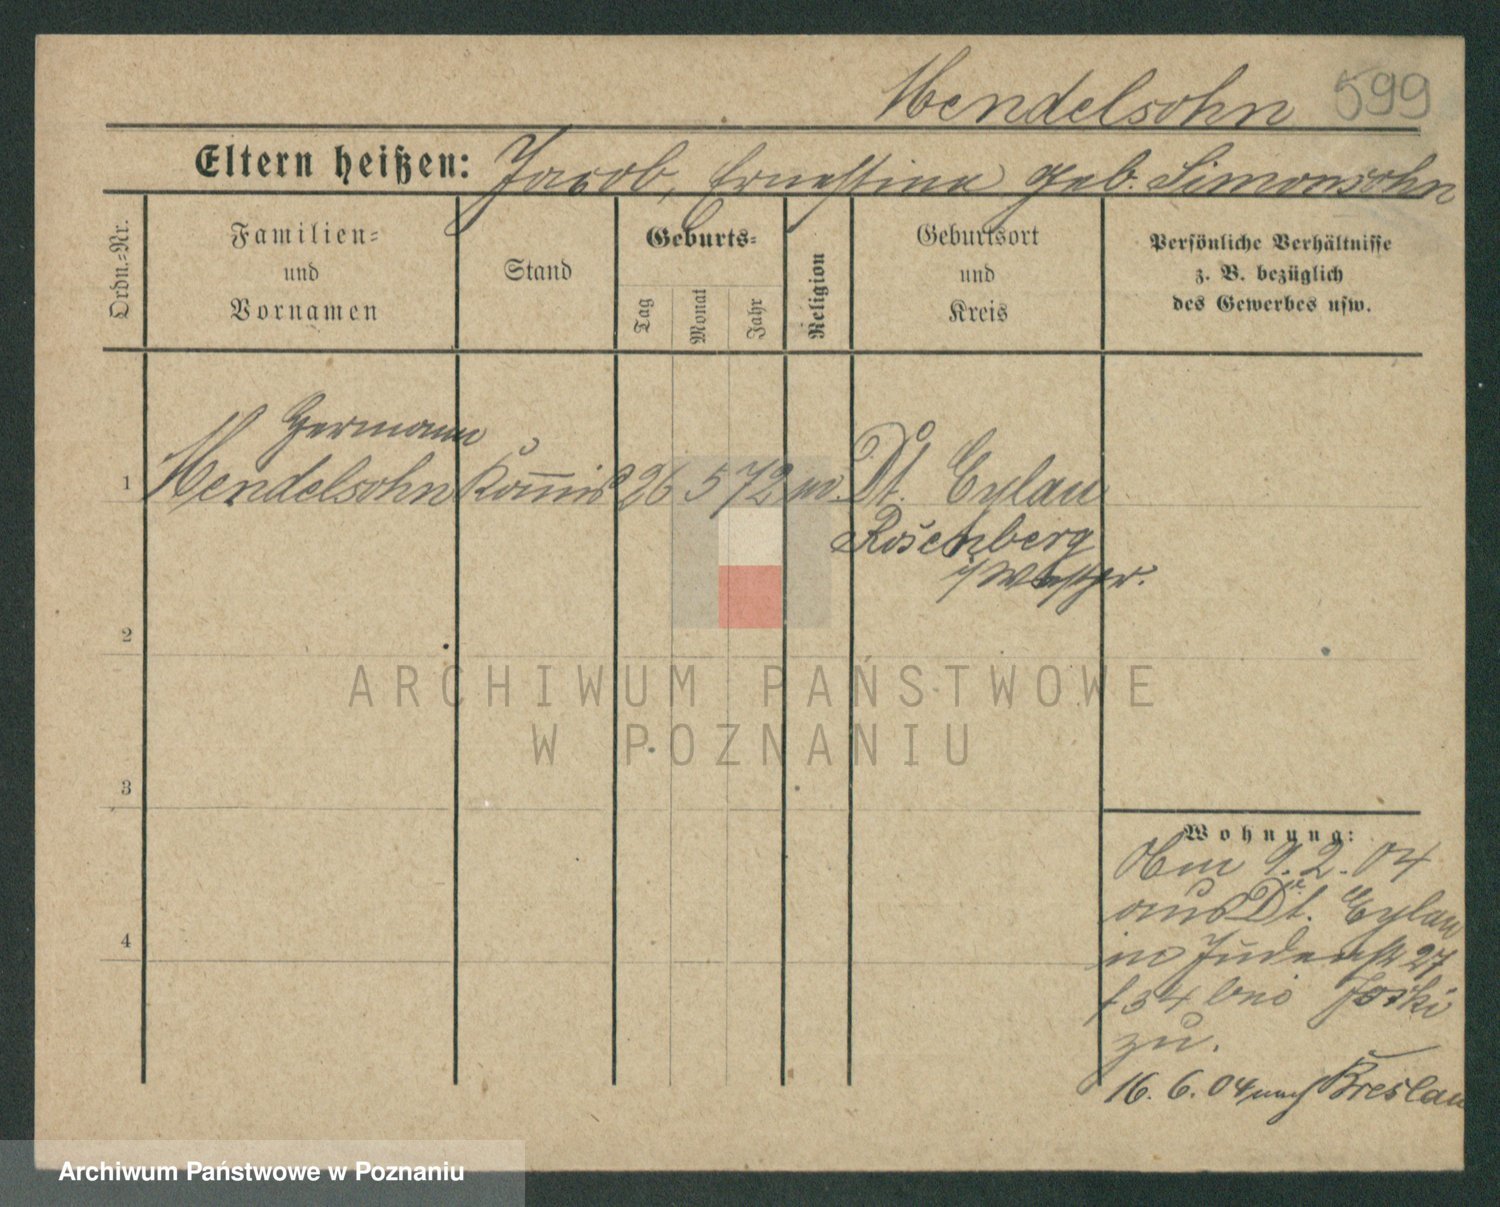 Mendelsohn 599
Eltern heißen: Jacob, Ernestine geb. Simonsohn
Ordn.-Nr.
Familien-
und
Vornamen
Stand
Geburts-
Tag
Monat
Jahr
Religion
Geburtsort
und
Kreis
Persönliche Verhältnisse
z. B. bezüglich
des Gewerbes usw.
Hermann
1 Mendelsohn Kommis 26 5 72 Dt. Eylau
Rosenberg
2
3
4
ARCHIWUM PAŃSTWOWE
W POZNANIU
Wohnung:
9.2.04
aus Dt. Eylau
in Judenstr 27
zu.
16. 6. 04 nach Breslau
Archiwum Państwowe w Poznaniu